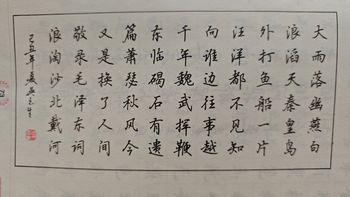 大雨落幽燕白
浪滔天秦皇島
外打鱼船一片
汪洋都不見知
向谁边往事越
千年魏武挥鞭
东临碣石有遗
篇萧瑟秋风今
又是换了人间
敬录毛泽东词
浪淘沙北戴河
己丑年